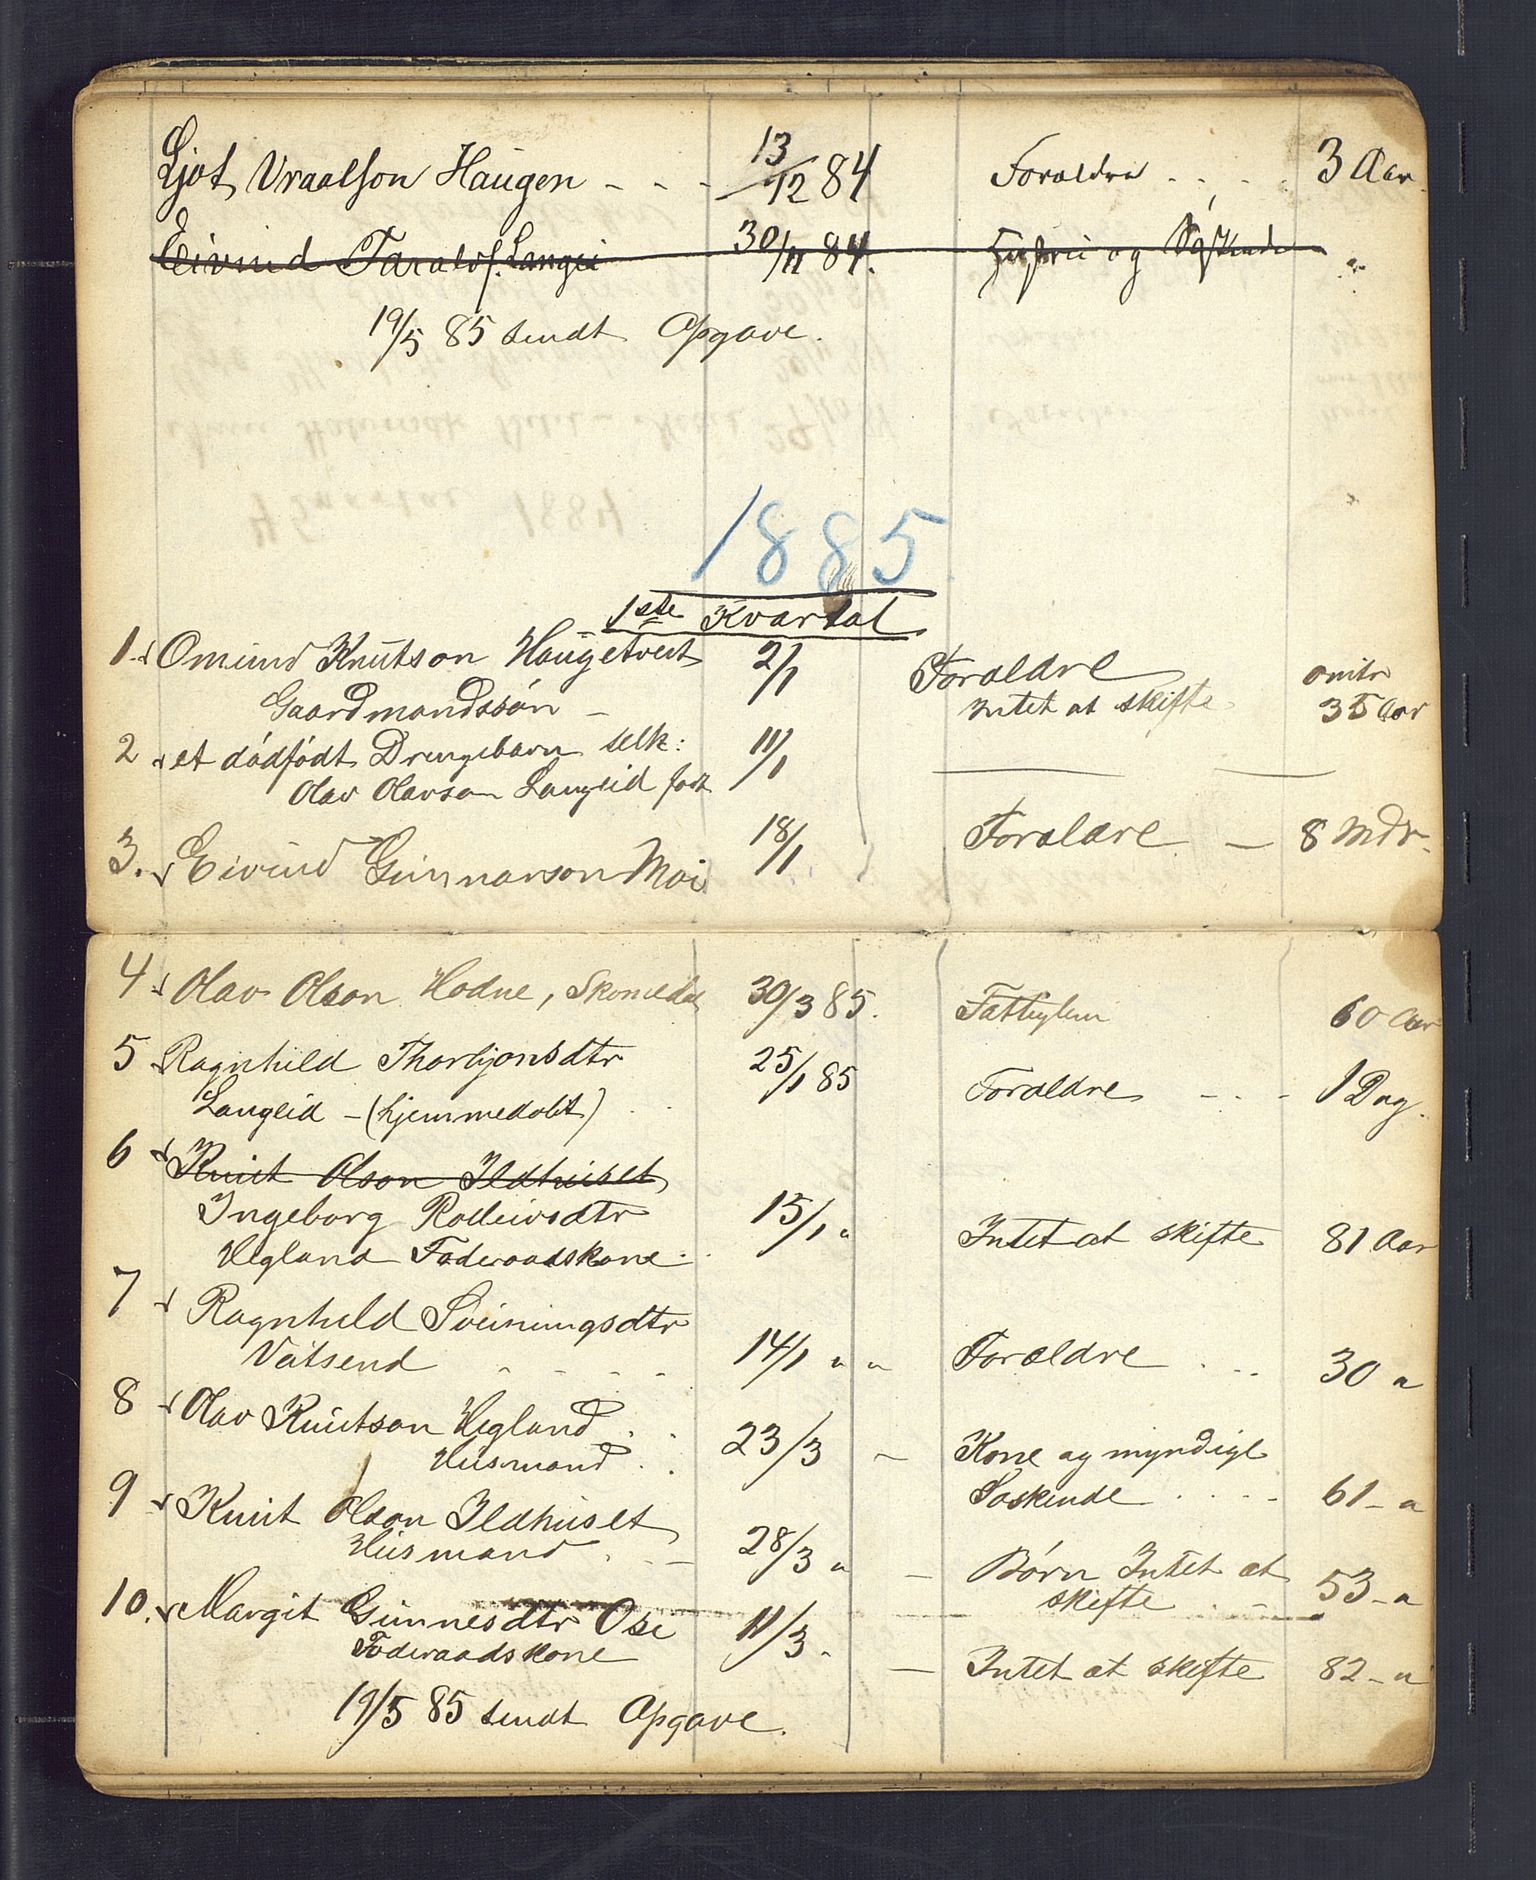 Ljot Vraalson Haugen - - - 13/12 84 Foraldre - - - 3 Aar
Eivind Taralds. Langei 30/11 84. Hustru og Søskende "
19/5 85 sendt Opgave.
1885
1ste Kvartal
1. Omund Knutson Haugetveit 2/1 Foraldre omtr
Gaardmandssøn - Intet at skifte 35 Aar
2 et dødfødt Drengebarn selk: 11/1
Olav Olavson Langeid
3. Eivind Gunnarson Moi 18/1 Foraldre - 8 Mdr.
4 Olav Olson Hodne, Skomedal 30/3 85. Fattiglem 60 Aar
5 Ragnhild Thorbjønsdtr 25/1 85 Foraldre - - - 1 Dag.
Langeid - (hjemmedøbt)
6 Knut Olson Ildhuset
Ingeborg Rolleivsdtr 15/1 " Intet at skifte 81 Aar
Hegland Føderaadskone
7 Ragnhild Sveinungsdtr
Vatsend - - - - 14/1 " " Forældre - - - 30 "
8 Olav Knutson Hegland 23/3 - Kone og myndige
Husmand Søskende - - - 61 - "
9 Knut Olson Ildhuset
Husmand 28/3 " - Børn Intet at
skifte 53 - "
10. Margit Gunnesdtr Ose 11/3 "
Føderaadskone - Intet at skifte 82 - "
19/5 85 sendt Opgave.